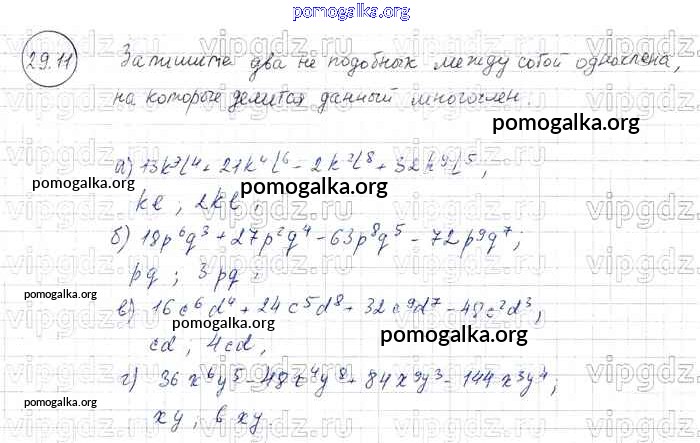 pomogalka.org
29.11 Запишите два не подобных между собой одночлена,
на которые делится данный многочлен.
pomogalka.org
а) 13k³l⁴ + 21k⁴l⁶ - 2k²l⁸ + 32k⁹l⁵;
pomogalka.org pomogalka.org
kl; 2kl;
б) 18p⁶q³ + 27p²q⁴ - 63p⁸q⁵ - 72p⁹q⁷;
pq; 3pq;
pomogalka.org
в) 16c⁶d⁴ + 24c⁵d⁸ + 32c⁹d⁷ - 48c²d³,
pomogalka.org pomogalka.org
cd, 4cd,
г) 36x⁶y⁵ - 48x⁴y⁸ + 84x⁹y³ - 144x³y⁴;
pomogalka.org
xy, 6xy.
vipgdz.ru